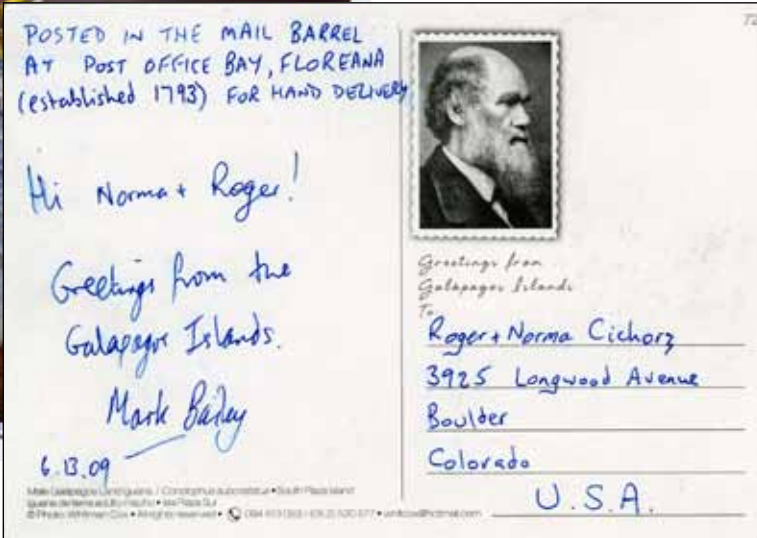 POSTED IN THE MAIL BARREL
AT POST OFFICE BAY, FLOREANA
(established 1793) FOR HAND DELIVERY
Hi Norma + Roger!
Greetings from the
Galapagos Islands.
Mark Bailey
6.13.09
Male Galapagos Land Iguana / Conolophus subcristatus • South Plaza Island
Iguana de tierra adulto macho • Isla Plaza Sur
© Photo: Whitman Cox • All rights reserved •
Greetings from
Galapagos Islands
To
Roger + Norma Cichorz
3925 Longwood Avenue
Boulder
Colorado
U.S.A.